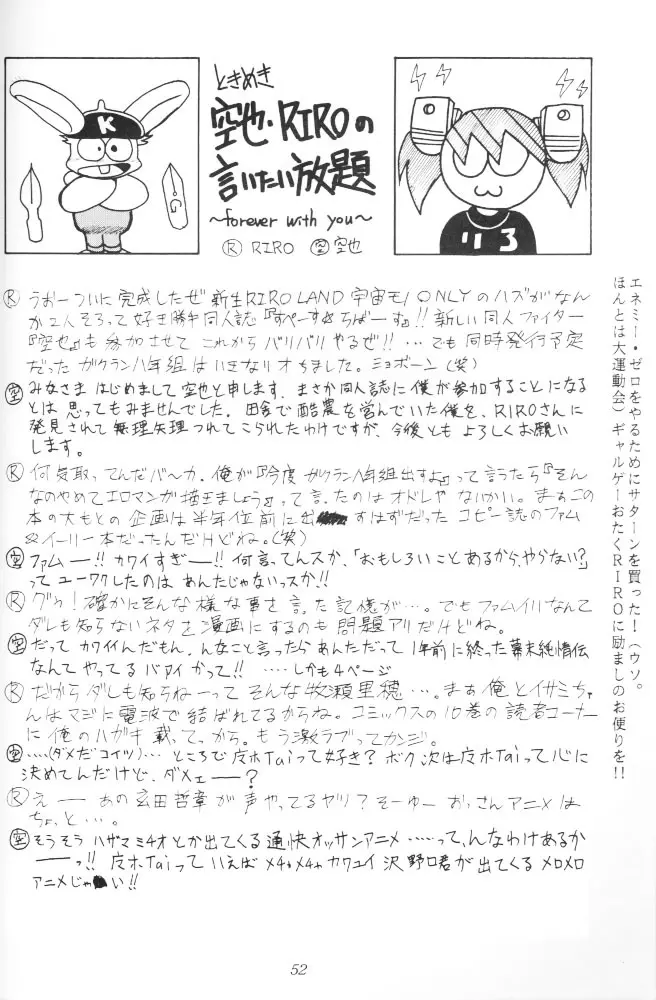 ときめき
空也・RIROの
言いたい放題
～forever with you～
Ⓡ RIRO ㊢ 空也
K
G
リ 3
エネミー・ゼロをやるためにサターンを買った！（ウソ。
ほんとは大運動会）ギャルゲーおたくＲＩＲＯに励ましのお便りを!!
Ⓡ うおーついに完成したぜ 新生RIRO LAND 宇宙モノONLYのハズがなん
か2人そろって好き勝手同人誌『すぺーす☆ちばーす』!! 新しい同人ファイター
『空也』も参加させて これからバリバリやるぜ!! …でも同時発行予定
だった ガクラン八年組は いきなりオちました。ショボーン(笑)
空 みなさま はじめまして 空也と申します。まさか同人誌に僕が参加することになる
とは 思ってもみませんでした。田舎で酪農を営んでいた僕を、RIROさんに
発見されて 無理矢理 つれてこられたわけですが、今後とも よろしくお願い
します。
Ⓡ 何気取ってんだバ〜カ。俺が『今度 ガクラン八年組出すよ』って言うたら『そん
なのやめてエロマンガ描きましょう』って言ったのは オドレや ないかい。まあこの
本の大もとの企画は半年位前に出 すはずだった コピー誌のファム
&イーリー本だったんだけどね。(笑)
空 ファム——!! カワイすぎ—!! 何言ってんスか、「おもしろいことあるから、やらない?」
って ユーワクしたのは あんたじゃないっスか!!
Ⓡ グゥ! 確かにそんな様な事を言った記憶が…。でもファムイリなんて
ダレも知らないネタを漫画にするのも 問題アリだけどね。
空 だって カワイんだもん。んなこと言ったらあんただって1年前に終った幕末純情伝
なんてやってるバアイかって!! ……しかも4ページ
Ⓡ だから ダレも知らねーって そんな牧瀬里穂…。まあ 俺とイサミちゃ
んはマジに電波で結ばれてるからね。コミックスの10巻の読者コーナー
に俺のハガキ載ってっから。もう激ラブってカンジ。
空 …(ダメだコイツ)… ところで皮ホTaiって好き? ボク次は皮ホTaiって心に
決めてんだけど、ダメェ——?
Ⓡ え—— あの玄田哲章が声やってるヤツ? そーゆー おっさんアニメは
ちょっと…。
空 そうそう ハザマミチオとか出てくる 痛快オッサンアニメ ……って、んなわけあるか
——っ!! 皮ホTaiって いえば メチャメチャ カワユイ 沢野口君が出てくる メロメロ
アニメじゃ い!!
52